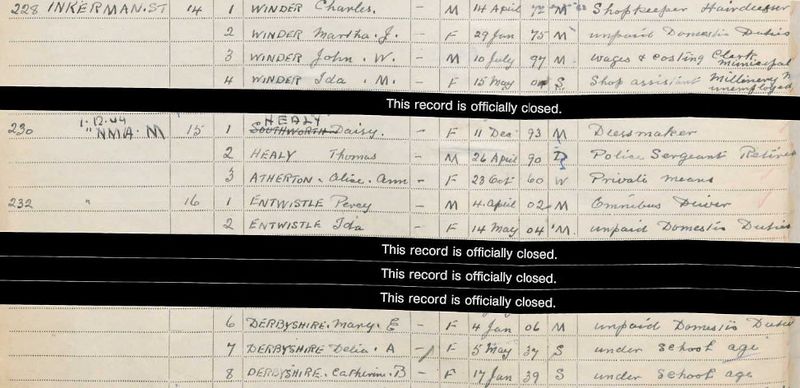 228 INKERMAN. ST 14 1 WINDER Charles. - M 14 April 72 M Shopkeeper Hairdresser
2 WINDER Martha. J. - F 29 Jan 75 M unpaid Domestic Duties
3 WINDER John. W. - M 10 July 97 M wages & costing Clerk municipal
4 WINDER Ida. M. - F 15 May S. Shop assistant Millinery unemployed
This record is officially closed.
1.12.44 HEALY
230 " NMA. M 15 1 SOUTHWORTH Daisy. - F 11 Dec 93 M Dressmaker
2 HEALY Thomas - M 26 April 90 Police Sergeant Retired
3 ATHERTON. Alice. Ann - F 23 Oct 60 W Private means
232 " 16 1 ENTWISTLE Percy - M 4. April 02 M Omnibus Driver
2 ENTWISTLE Ida - F 14 May 04 M. unpaid Domestic Duties
This record is officially closed.
This record is officially closed.
This record is officially closed.
6 DERBYSHIRE. Mary. E - F 4 Jan 06 M unpaid Domestic Duties
7 DERBYSHIRE Delia. A - F 5 May 37 S under school age
8 DERBYSHIRE. Catherine. B - F 17 Jan 39 S under school age